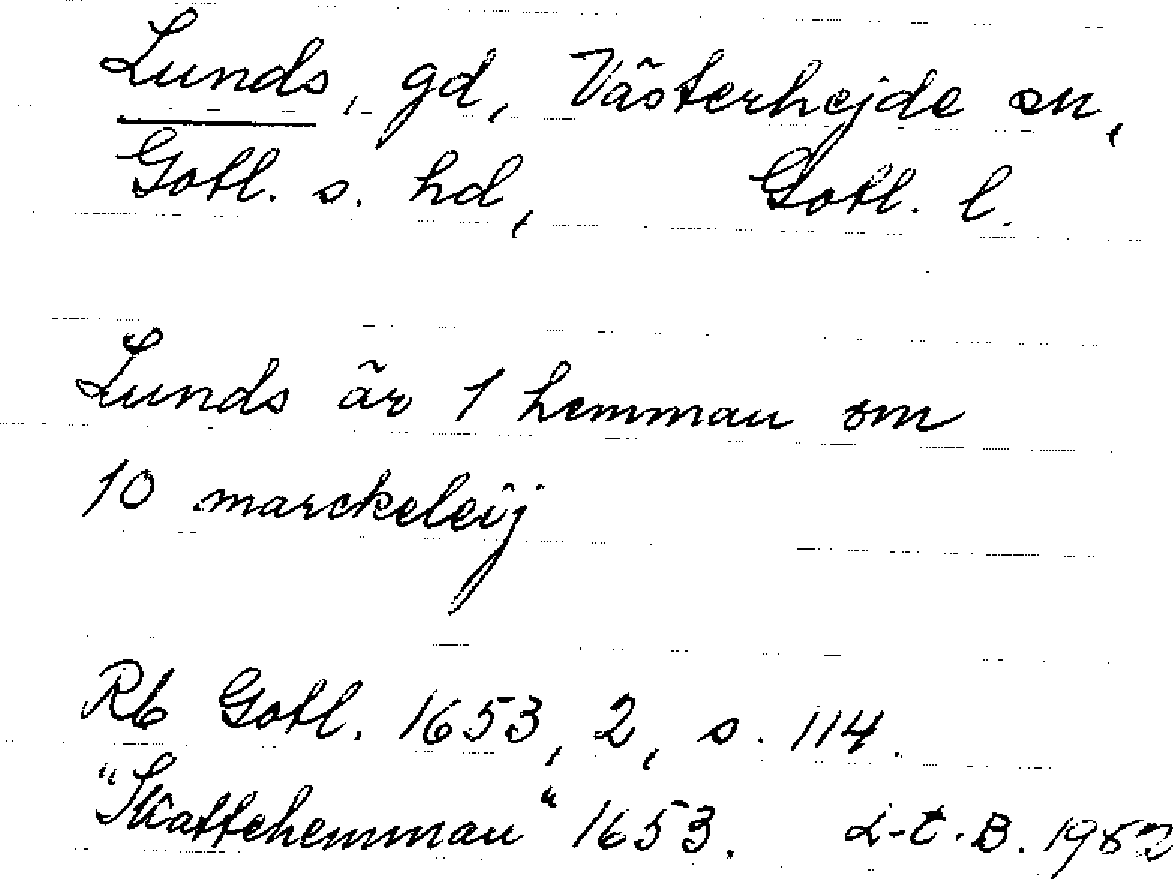 Lunds, gd, Västerhejde sn,
Gotl. s. hd, Gotl. l.
Lunds är 1 hemman om
10 marckeleij
Rb Gotl. 1653, 2, s. 114.
"Skattehemman" 1653. L-t. B. 1952